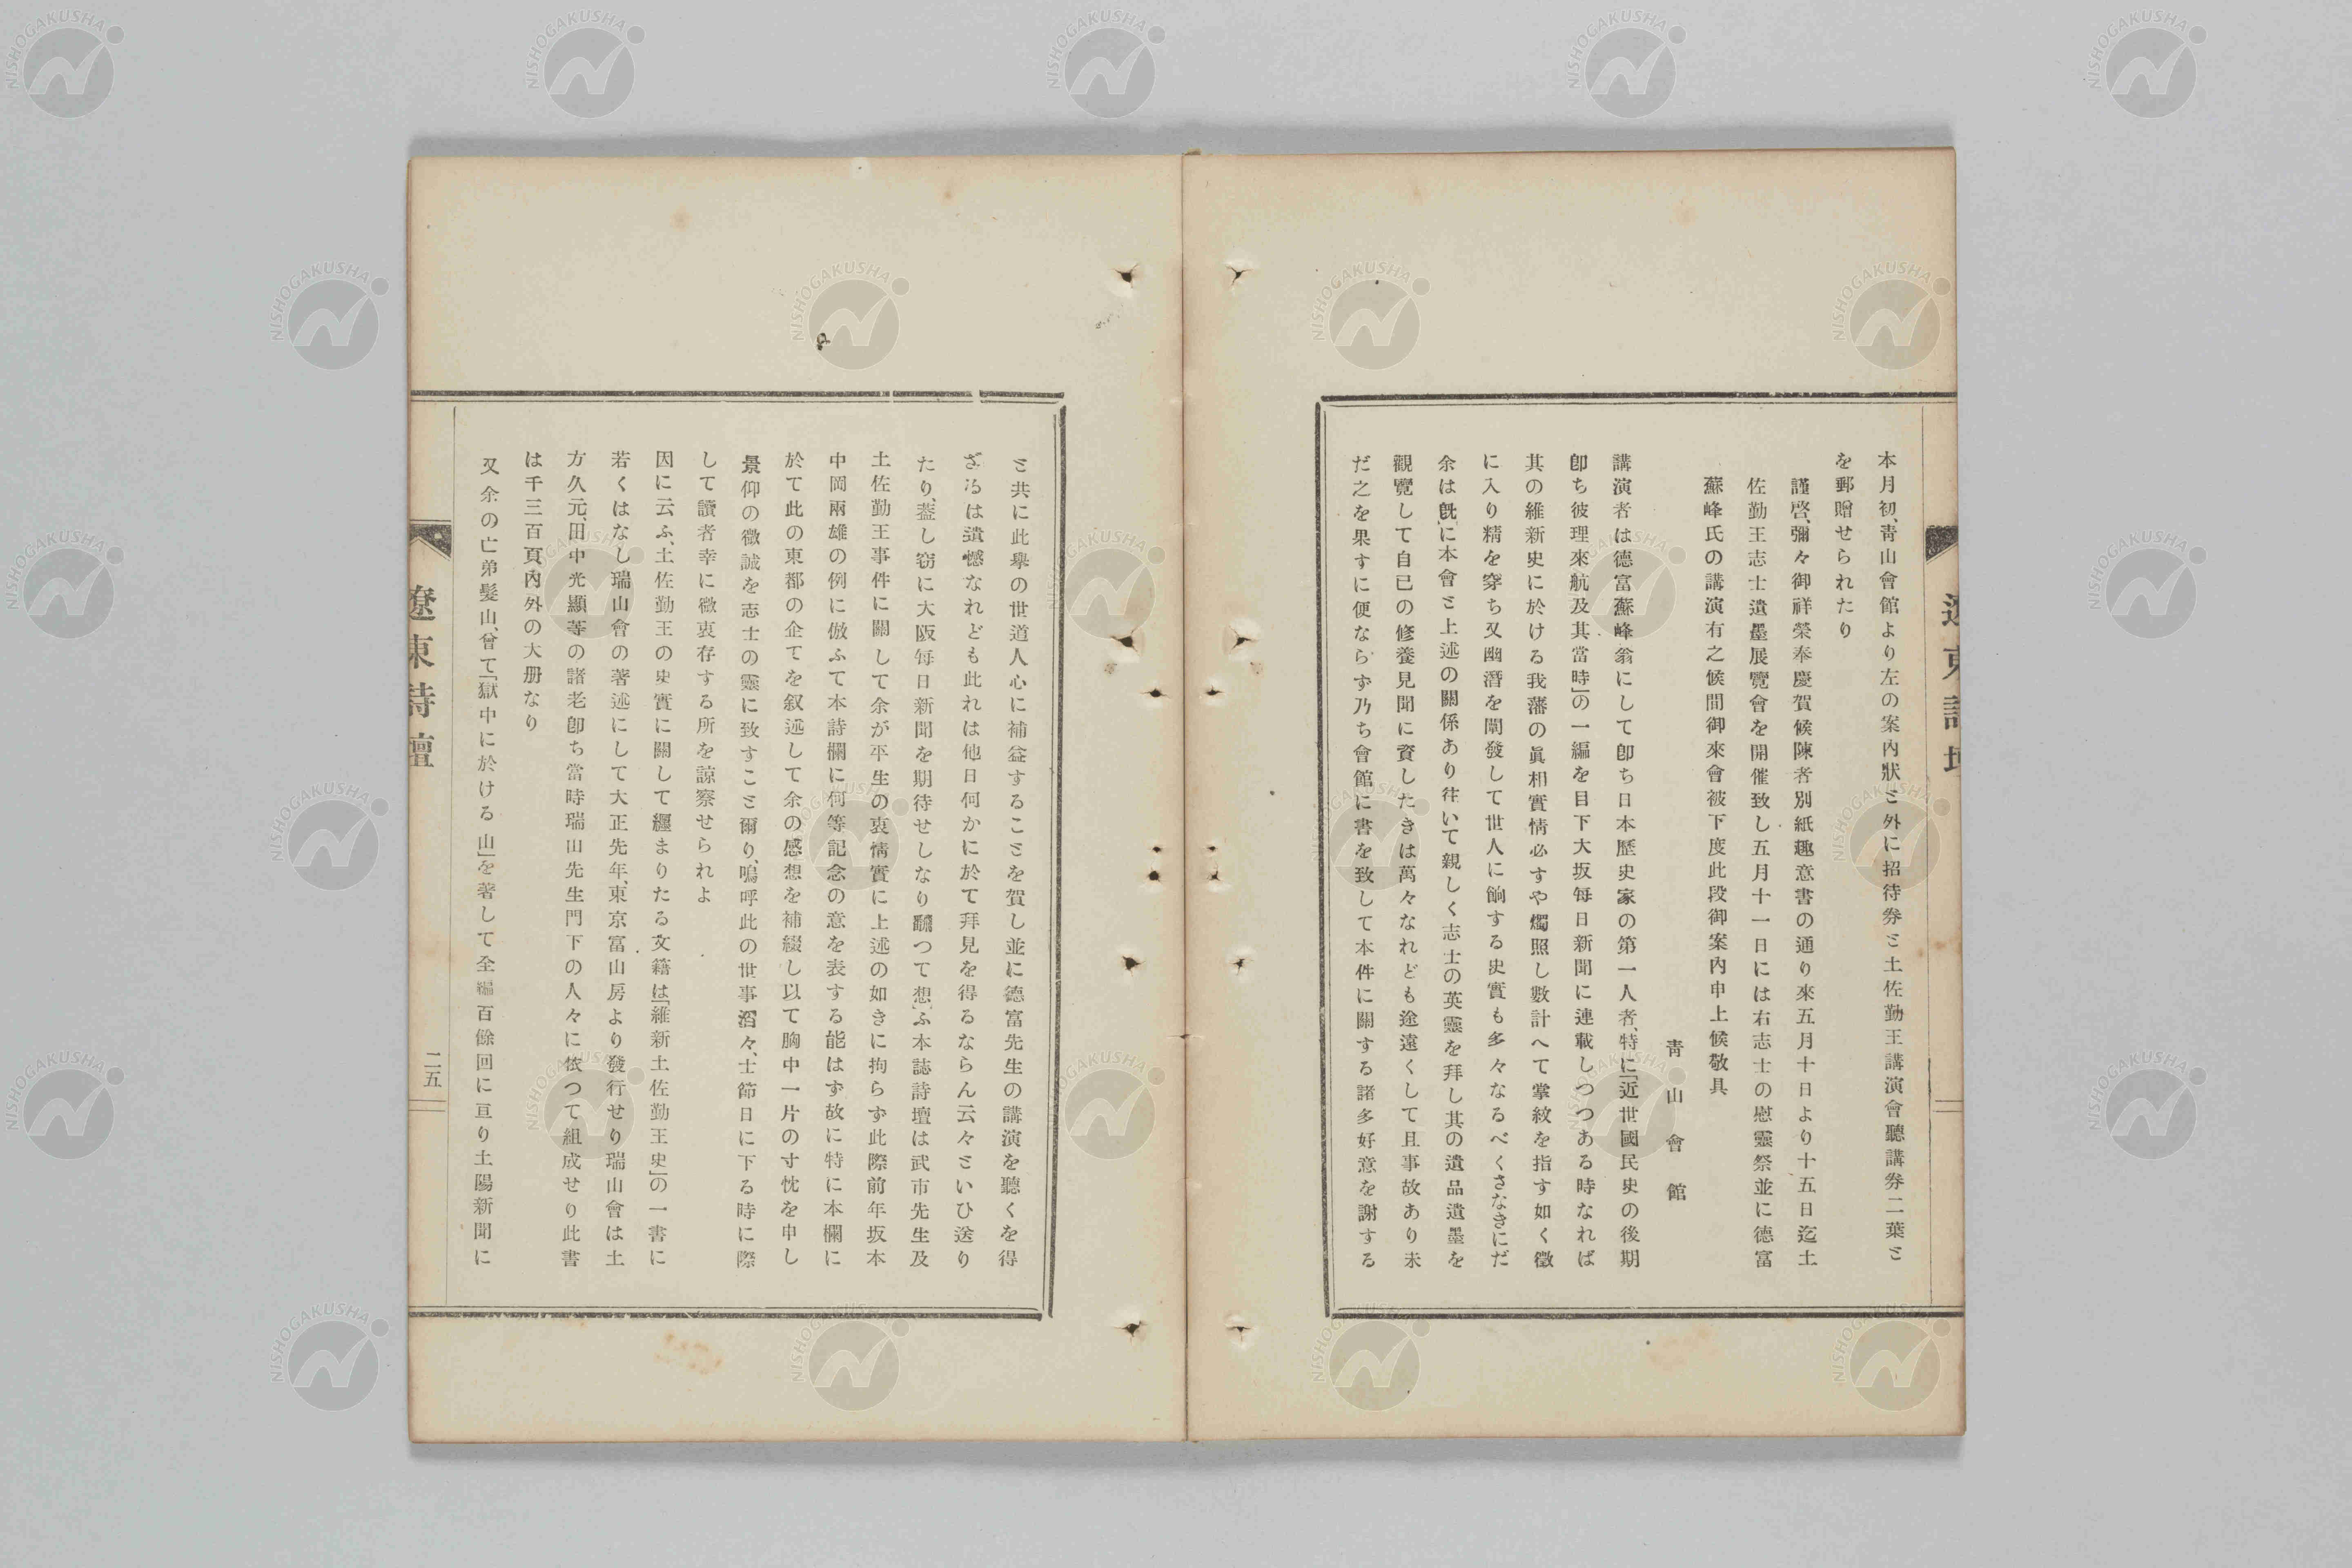 本月初、靑山會館より左の案內狀と外に招待券と土佐勤王講演會聽講券二葉と
を郵贈せられたり
謹啓、彌々御祥榮奉慶賀候陳者別紙趣意書の通り來五月十日より十五日迄土
佐勤王志士遺墨展覽會を開催致し五月十一日には右志士の慰靈祭並に德富
蘇峰氏の講演有之候間御來會被下度此段御案內申上候敬具
靑山會館
講演者は德富蘇峰翁にして卽ち日本歷史家の第一人者、特に「近世國民史の後期
卽ち彼理來航及其當時」の一編を目下大坂每日新聞に連載しつつある時なれば
其の維新史に於ける我藩の眞相實情必すや燭照し數計へて掌紋を指す如く徵
に入り精を穿ち又幽潛を闡發して世人に餉する史實も多々なるべくさなきにだ
余は旣に本會と上述の關係あり往いて親しく志士の英靈を拜し其の遺品遺墨を
觀覽して自己の修養見聞に資したきは萬々なれども途遠くして且事故あり未
だ之を果すに便ならず乃ち會館に書を致して本件に關する諸多好意を謝する
と共に此擧の世道人心に補益することを賀し並に德富先生の講演を聽くを得
ざるは遺憾なれども此れは他日何かに於て拜見を得るならん云々といひ送り
たり、蓋し窃に大阪每日新聞を期待せしなり飜つて想ふ本誌詩壇は武市先生及
土佐勤王事件に關して余が平生の衷情實に上述の如きに拘らず此際前年坂本
中岡兩雄の例に倣ふて本詩欄に何等記念の意を表する能はず故に特に本欄に
於て此の東都の企てを叙述して余の感想を補綴し以て胸中一片の寸忱を申し
景仰の微誠を志士の靈に致すこと爾り、嗚呼此の世事滔々、士節日に下る時に際
して讀者幸に微衷存する所を諒察せられよ
因に云ふ、土佐勤王の史實に關して纒まりたる文籍は「維新土佐勤王史」の一書に
若くはなし瑞山會の著述にして大正先年、東京富山房より發行せり瑞山會は土
方久元、田中光顯等の諸老卽ち當時瑞山先生門下の人々に依つて組成せり此書
は千三百頁內外の大册なり
又余の亡弟髮山、曾て「獄中に於ける山」を著して全編百餘回に亘り土陽新聞に
遼東詩壇
二五